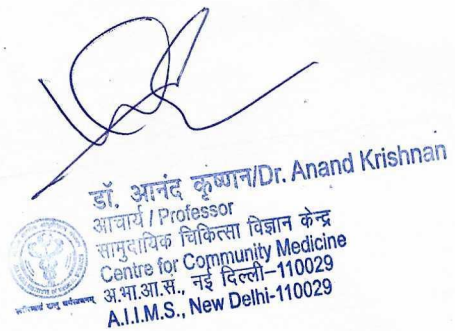 डॉ. आनंद कृष्णन/Dr. Anand Krishnan
आचार्य / Professor
सामुदायिक चिकित्सा विज्ञान केन्द्र
Centre for Community Medicine
अ.भा.आ.सं., नई दिल्ली–110029
A.I.I.M.S., New Delhi-110029